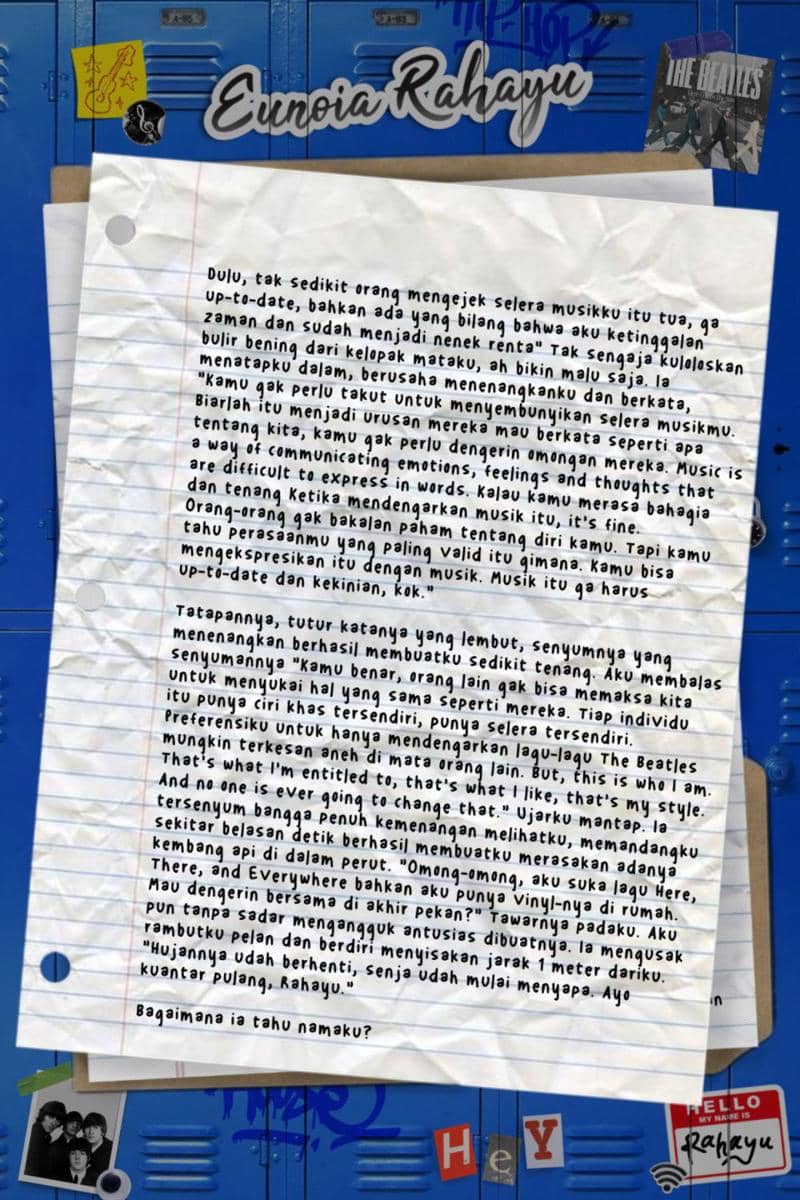 A-95
A-93
HIP-HOP
Eunoia Rahayu
THE BEATLES
Dulu, tak sedikit orang mengejek selera musikku itu tua, ga
up-to-date, bahkan ada yang bilang bahwa aku ketinggalan
zaman dan sudah menjadi nenek renta" Tak sengaja kuloloskan
bulir bening dari kelopak mataku, ah bikin malu saja. Ia
menatapku dalam, berusaha menenangkanku dan berkata,
"Kamu gak perlu takut untuk menyembunyikan selera musikmu.
Biarlah itu menjadi urusan mereka mau berkata seperti apa
tentang kita, kamu gak perlu dengerin omongan mereka. Music is
a way of communicating emotions, feelings and thoughts that
are difficult to express in words. Kalau kamu merasa bahagia
dan tenang Ketika mendengarkan musik itu, it's fine.
Orang-orang gak bakalan paham tentang diri kamu. Tapi kamu
tahu perasaanmu yang paling valid itu gimana. Kamu bisa
mengekspresikan itu dengan musik. Musik itu ga harus
up-to-date dan kekinian, kok."
Tatapannya, tutur katanya yang lembut, senyumnya yang
menenangkan berhasil membuatku sedikit tenang. Aku membalas
senyumannya "Kamu benar, orang lain gak bisa memaksa kita
untuk menyukai hal yang sama seperti mereka. Tiap individu
itu punya ciri khas tersendiri, punya selera tersendiri.
Preferensiku untuk hanya mendengarkan lagu-lagu The Beatles
mungkin terkesan aneh di mata orang lain. But, this is who I am.
That's what I'm entitled to, that's what I like, that's my style.
And no one is ever going to change that." Ujarku mantap. Ia
tersenyum bangga penuh kemenangan melihatku, memandangku
sekitar belasan detik berhasil membuatku merasakan adanya
kembang api di dalam perut. "Omong-omong, aku suka lagu Here,
There, and Everywhere bahkan aku punya Vinyl-nya di rumah.
Mau dengerin bersama di akhir pekan?" Tawarnya padaku. Aku
pun tanpa sadar mengangguk antusias dibuatnya. Ia mengusak
rambutku pelan dan berdiri menyisakan jarak 1 meter dariku.
"Hujannya udah berhenti, senja udah mulai menyapa. Ayo
kuantar pulang, Rahayu."
Bagaimana ia tahu namaku?
HeY
HELLO
MY NAME IS
Rahayu